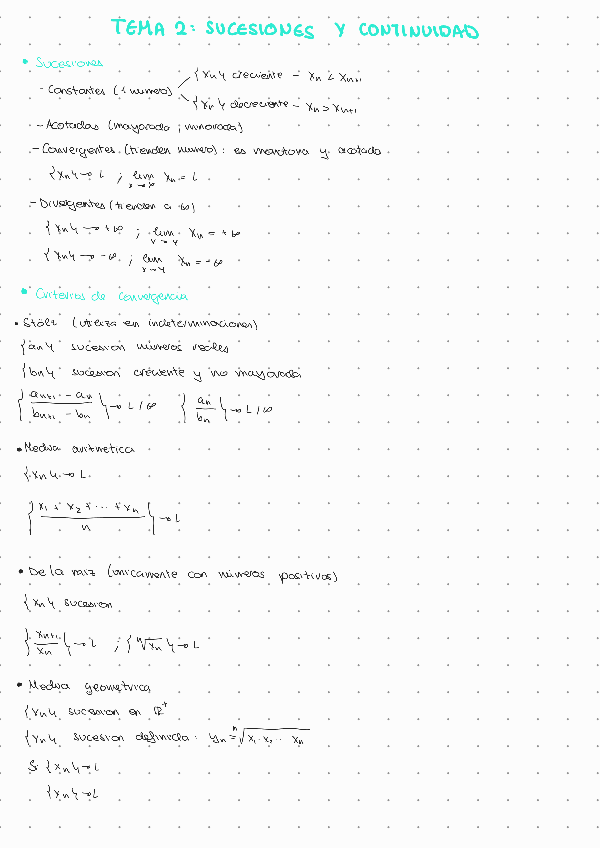 TEMA 2: SUCESIONES Y CONTINUIDAD
• Sucesiones
{xn} creciente - xn < xn+1
- Constantes (1 numero)
{xn} decreciente - xn > xn+1
- Acotadas (mayorada ; minorada)
- Convergentes (tienden numero): es monotona y acotada
{xn} → L ; lim x→∞ xn = L
- Divergentes (tienden a ∞)
{xn} → +∞ ; lim xn = +∞
{xn} → -∞ ; lim xn = -∞
• Criterios de convergencia
• Stölz (utiliza en indeterminaciones)
{an} sucesion números reales
{bn} sucesion creciente y no mayorada
{(an+1 - an)/(bn+1 - bn)} → L/∞ {an/bn} → L/∞
• Media aritmetica
{xn} → L
{(x1 + x2 + ... + xn)/n} → L
• De la raiz (unicamente con números positivos)
{xn} sucesion
{xn+1/xn} → L ; {ⁿ√xn} → L
• Media geometrica
{xn} sucesion en ℝ⁺
{yn} sucesion definida: yn = ⁿ√(x1 · x2 ... xn)
Si {xn} → L
{xn} → L